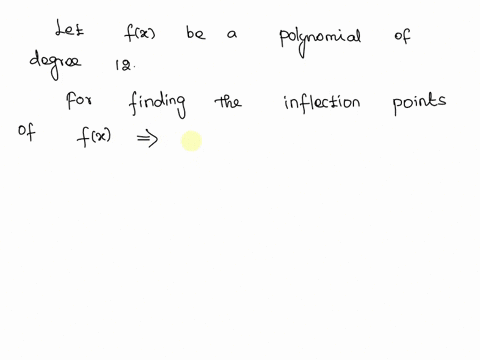 Let f(x) be a polynomial of
degree 12.
For finding the inflection points
of f(x) ⇒